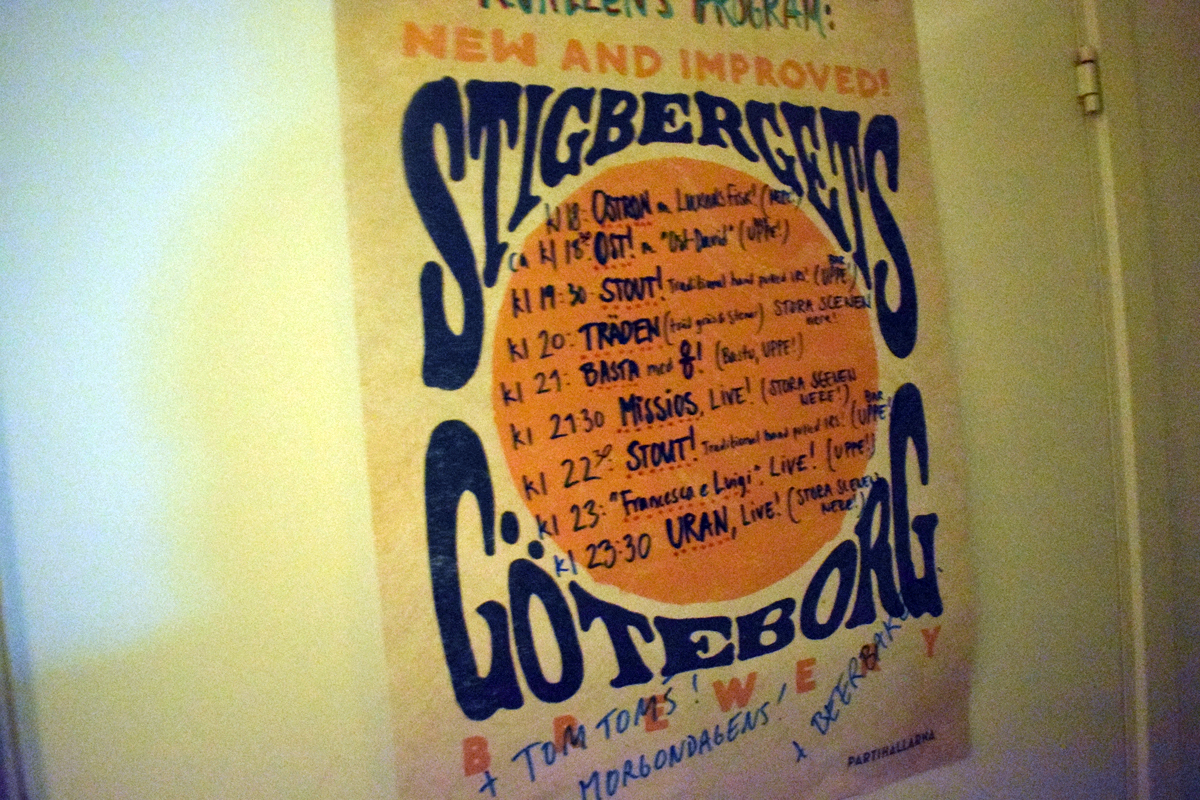 KVÄLLEN'S PROGRAM:
NEW AND IMPROVED!
STIGBERGETS
kl 18: OSTRON m. Luxans Fisk! (NERE!)
ca kl 18³⁰ OST! m "Ost-David" (BAR UPPE!)
kl 19:30 STOUT! Traditional hand pulled IRS! (BAR UPPE!)
kl 20: TRÄDEN (träd gräs & stenar) STORA SCENEN nere!
kl 21: BASTA med &! (Bastu, UPPE!)
kl 21:30 MISSIOS, LIVE! (STORA SCENEN NERE!)
kl 22³⁰ STOUT! Traditional hand pulled IRS! (BAR UPPE!
kl 23: "Francesca e Luigi". LIVE! (UPPE!)
kl 23:30 URAN, LIVE! (STORA SCENEN NERE!)
GÖTEBORG
BREWERY
+ TOM TOMS!
MORGONDAGENS!
+ BEERBAKE
PARTIHALLARNA